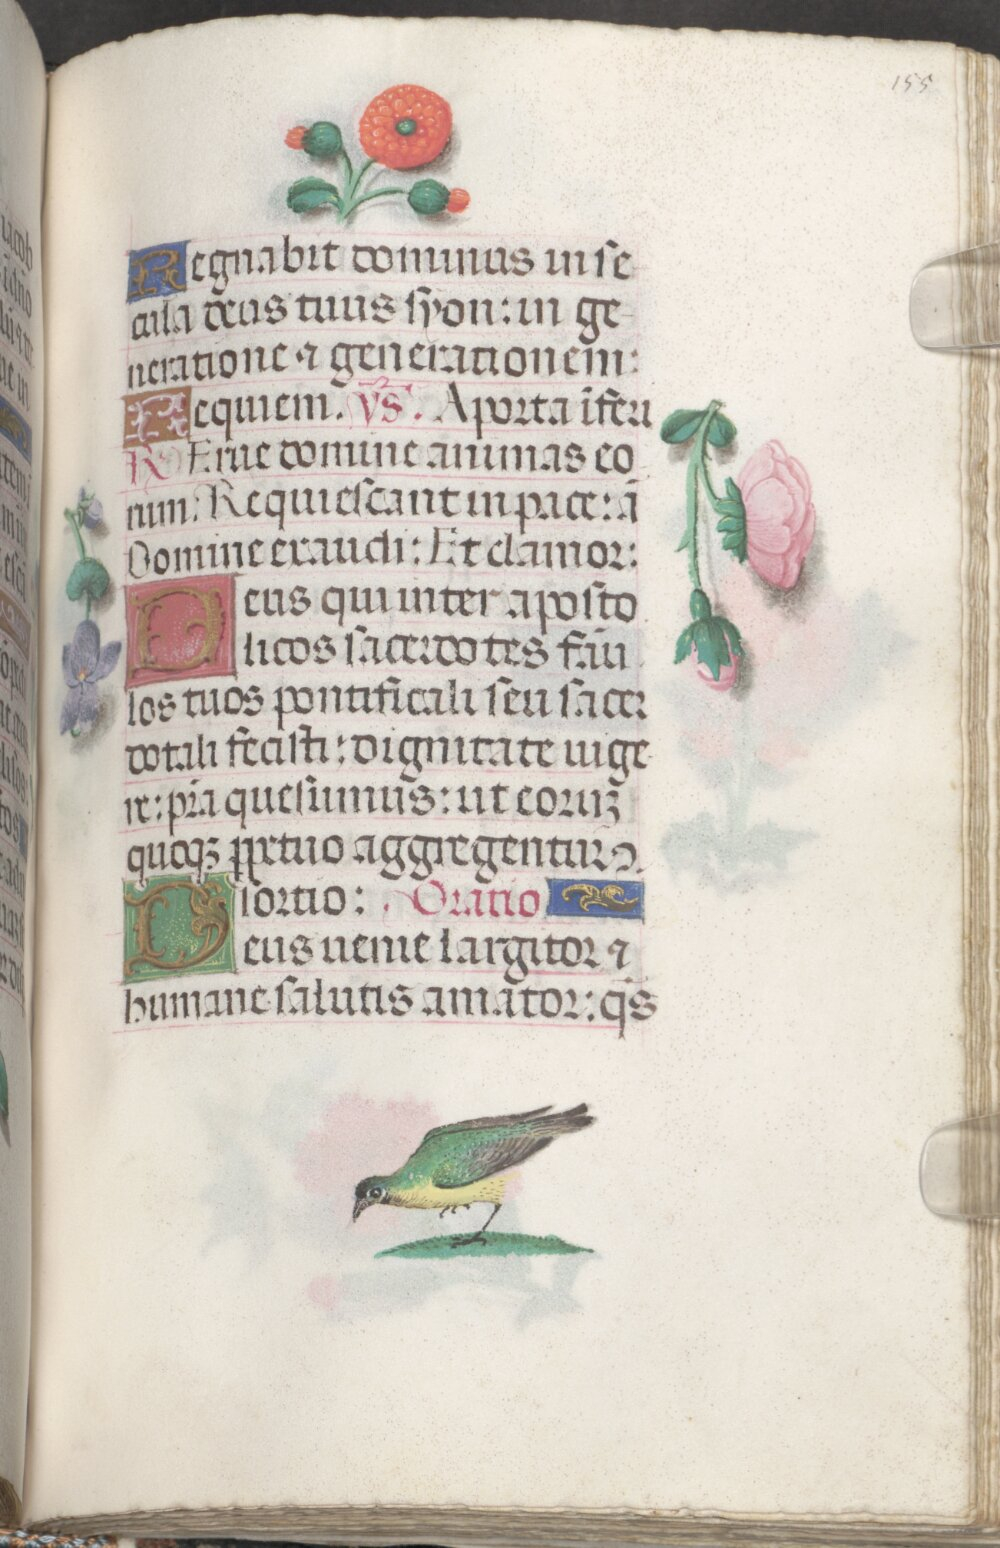 155
Regnabit dominus in se
cula deus tuus syon: in ge
neratione ⁊ generationem:
Requiem. V̄s. A porta īferi
R Erue domine animas eo
rum: Requiescant in pace: ā
Domine exaudi: Et clamor:
Deus qui inter aposto
licos sacerdotes fāu
los tuos pontificali seu sacer
dotali fecisti: dignitate uige
re: p̄ra quesumus: ut eorūꝫ
quoqꝫ ꝑpetuo aggregentur ꝯ
sortio: Oratio
Deus uenie largitor ⁊
humane salutis amator: q̄s